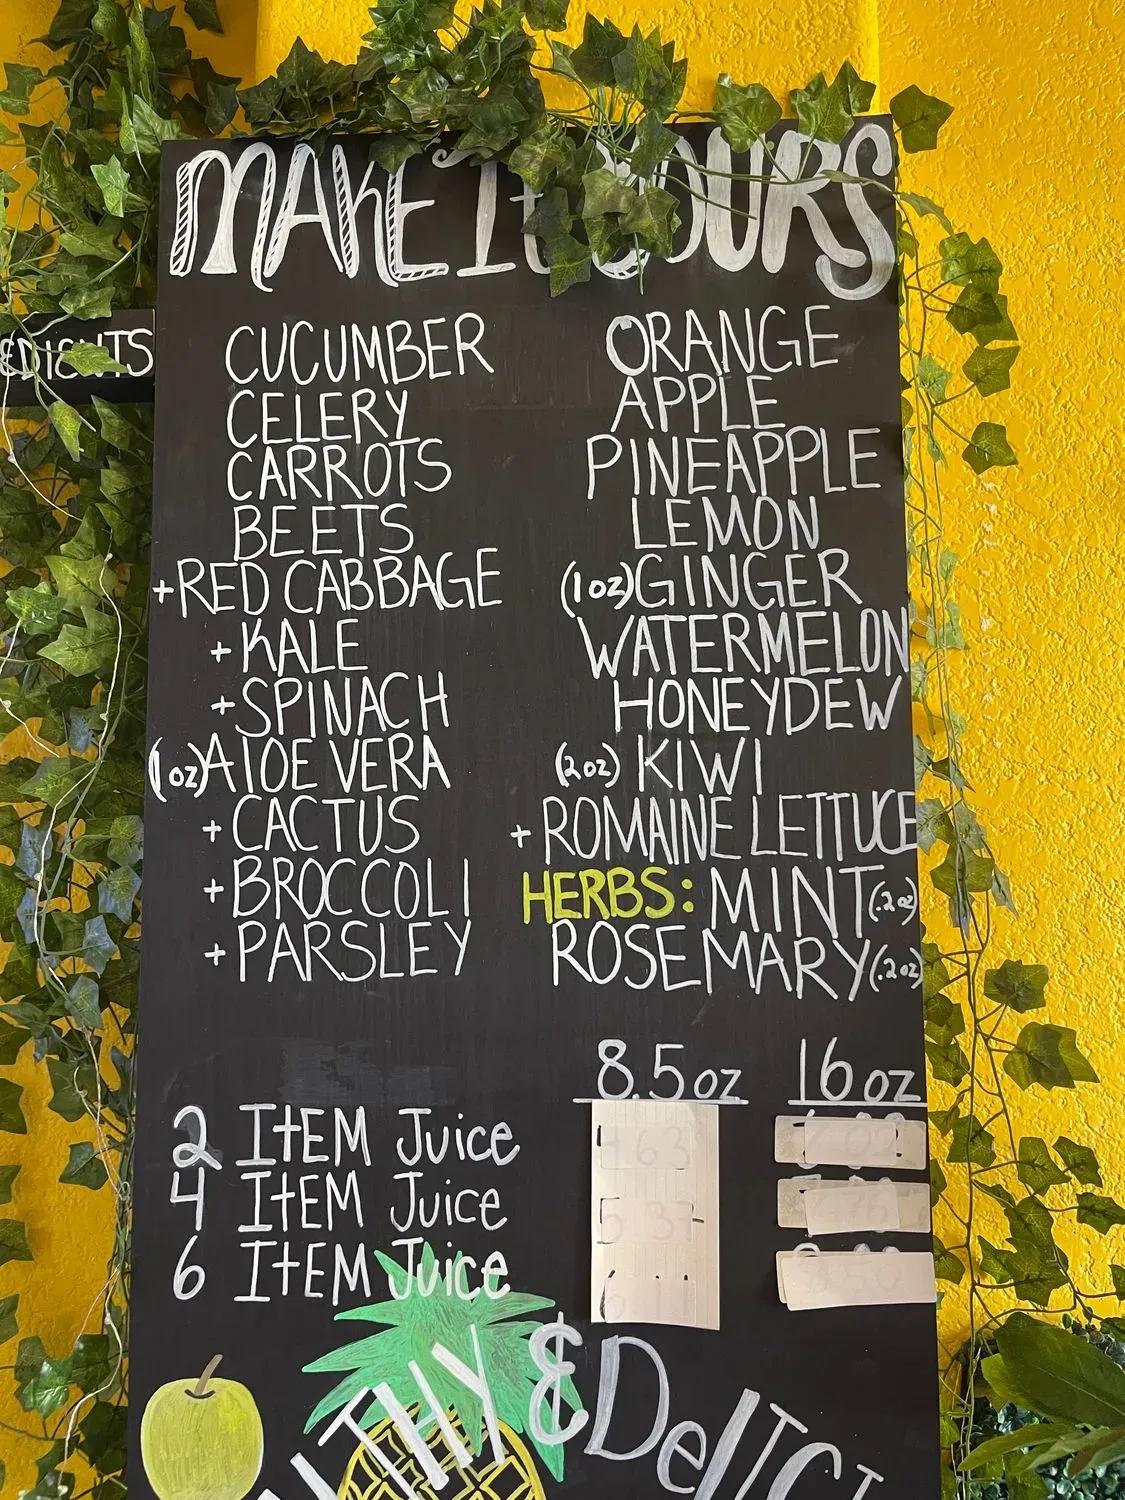 MAKE It YOURS
CUCUMBER
CELERY
CARROTS
BEETS
+RED CABBAGE
+KALE
+SPINACH
(1oz)AlOE VERA
+CACTUS
+BROCCOLI
+PARSLEY
ORANGE
APPLE
PINEAPPLE
LEMON
(1oz)GINGER
WATERMELON
HONEYDEW
(2oz) KIWI
+ROMAINE LETTUCE
HERBS: MINT(.2oz)
ROSEMARY(.2oz)
8.5oz 16oz
2 ItEM Juice
4 ItEM Juice
6 ItEM Juice
&